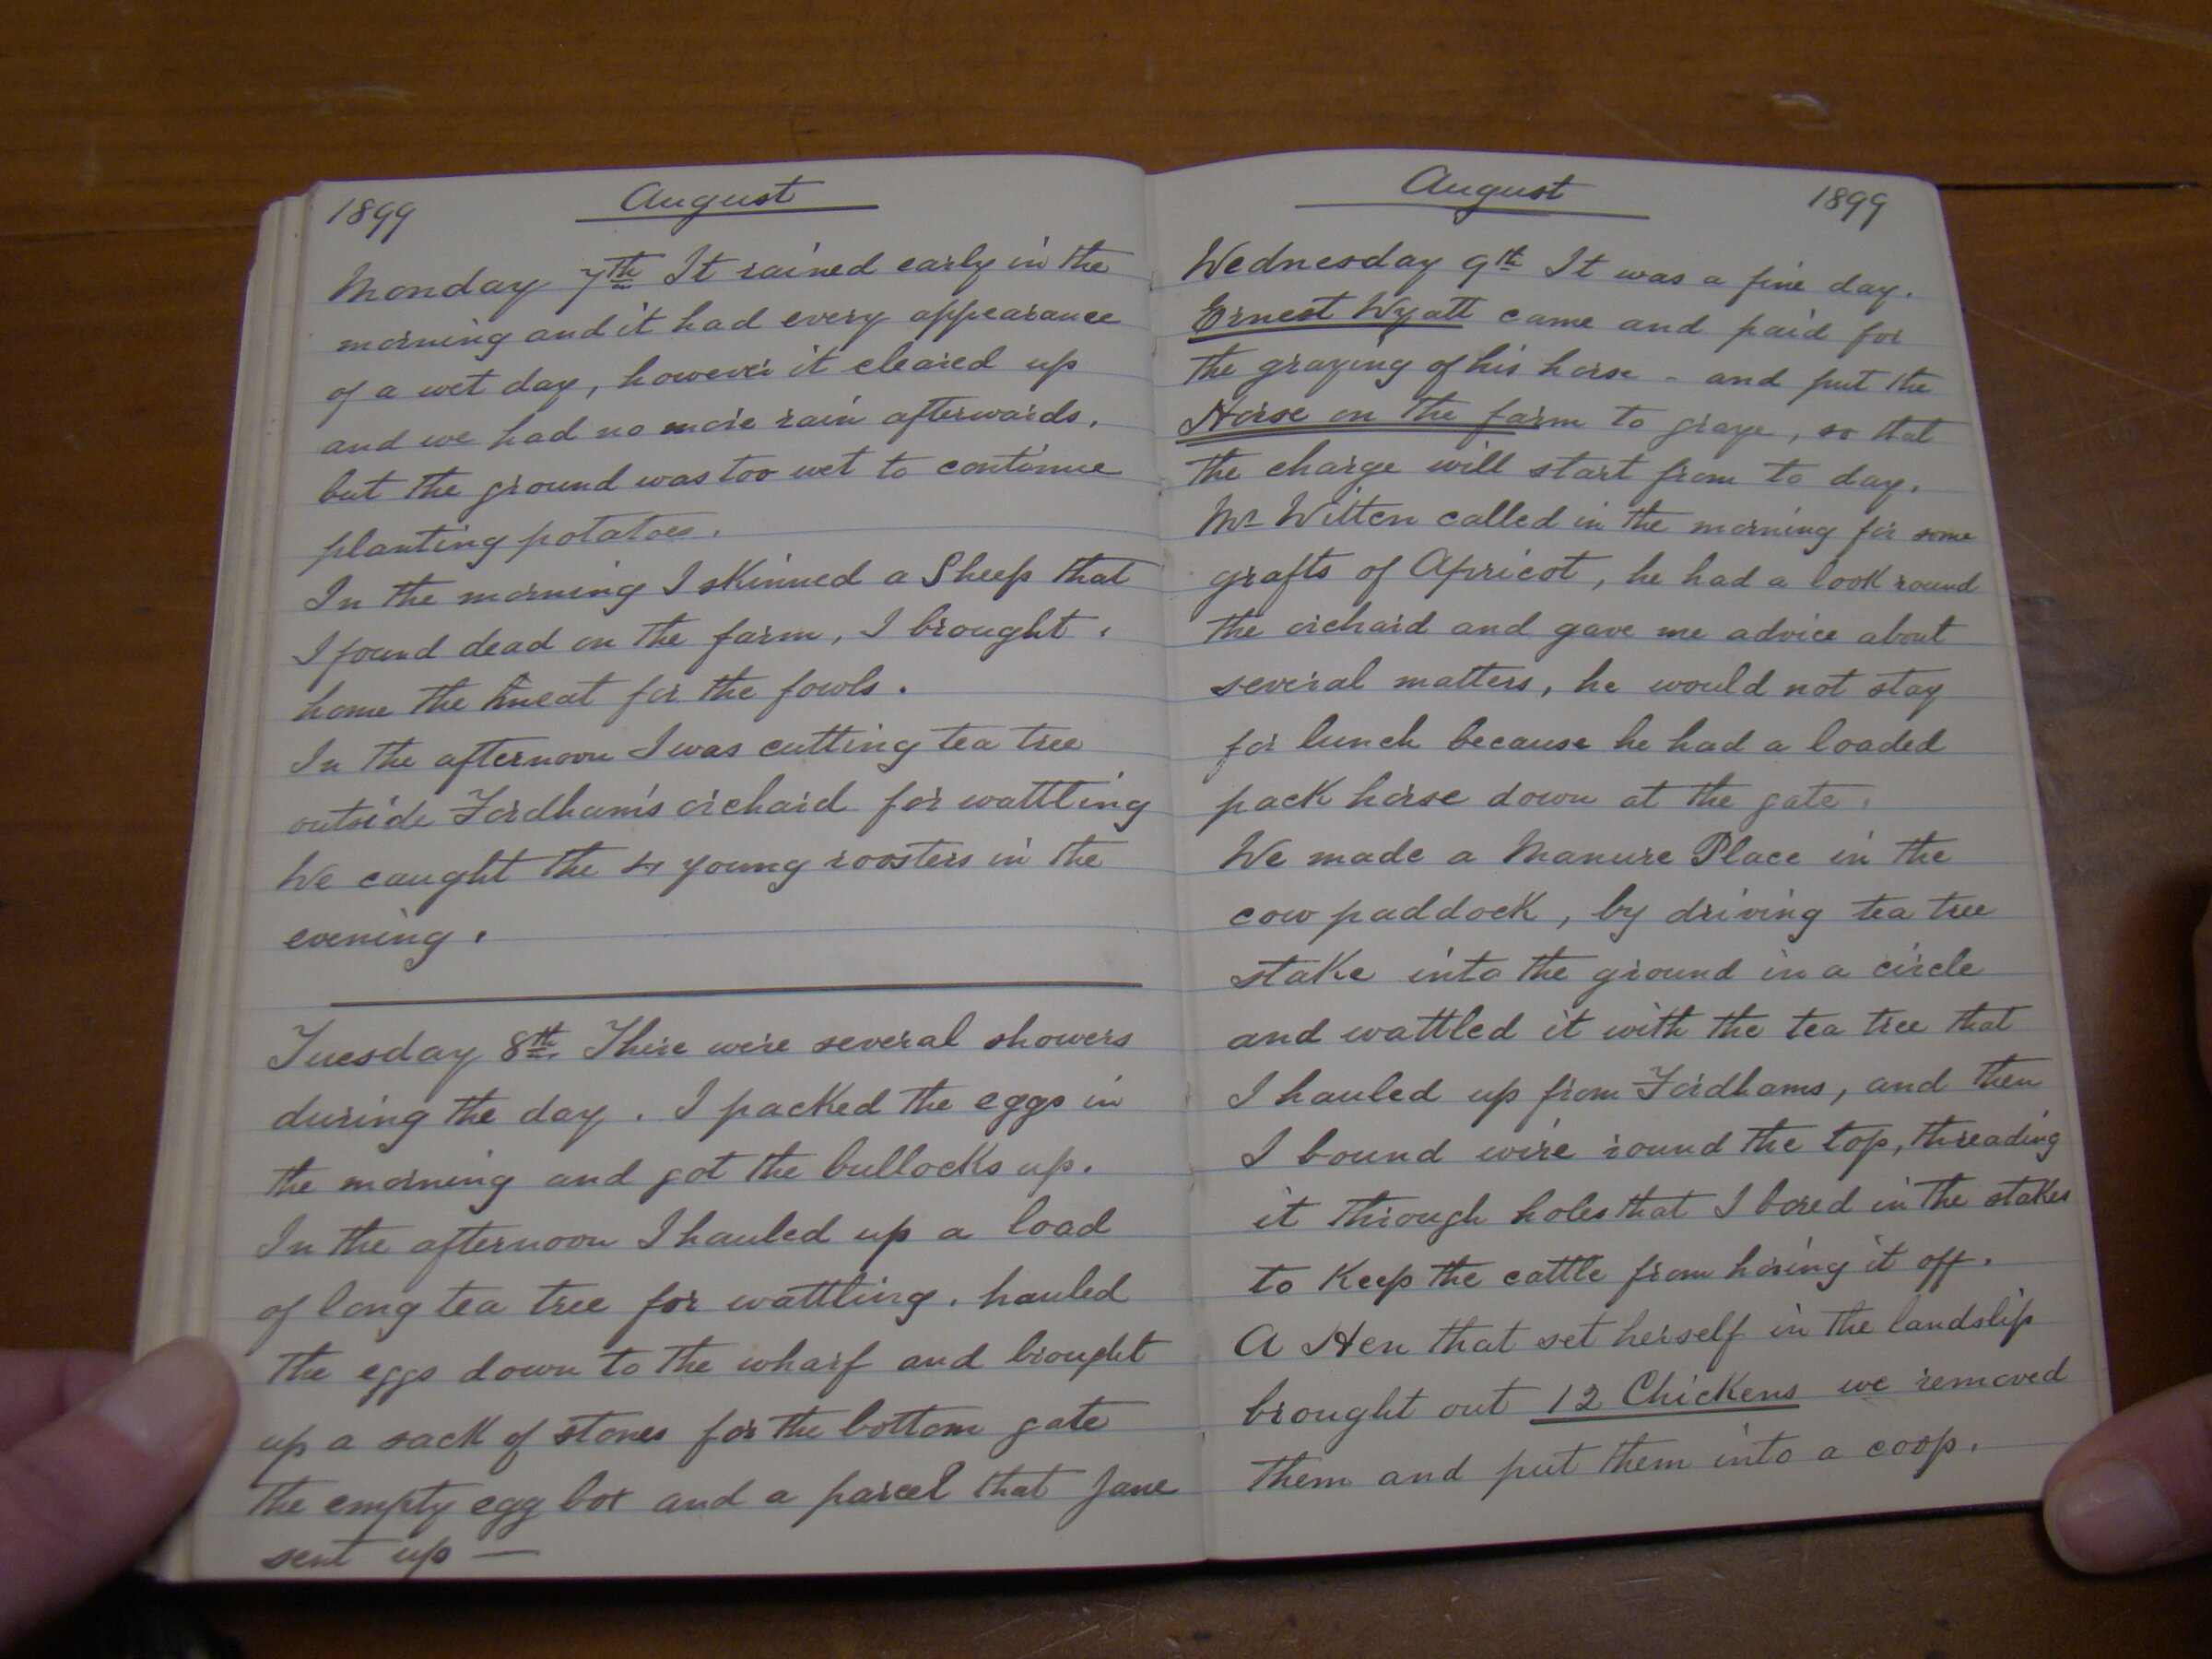 1899 August
Monday 7th It rained early in the
morning and it had every appearance
of a wet day, however it cleared up
and we had no more rain afterwards,
but the ground was too wet to continue
planting potatoes.
In the morning I skinned a Sheep that
I found dead on the farm, I brought
home the meat for the fowls.
In the afternoon I was cutting tea tree
outside Fordham's orchard for wattling
We caught the 4 young roosters in the
evening.
Tuesday 8th. There were several showers
during the day. I packed the eggs in
the morning and got the bullocks up.
In the afternoon I hauled up a load
of long tea tree for wattling. hauled
the eggs down to the wharf and brought
up a sack of stones for the bottom gate
The empty egg box and a parcel that Jane
sent up —
August 1899
Wednesday 9th It was a fine day.
Ernest Wyatt came and paid for
the grazing of his horse - and put the
Horse on the farm to graze, so that
the charge will start from to day.
Mr Witten called in the morning for some
grafts of Apricot, he had a look round
the orchard and gave me advice about
several matters, he would not stay
for lunch because he had a loaded
pack horse down at the gate.
We made a Manure Place in the
cow paddock, by driving tea tree
stake into the ground in a circle
and wattled it with the tea tree that
I hauled up from Fordhams, and then
I bound wire round the top, threading
it through holes that I bored in the stakes
to Keep the cattle from horing it off.
A Hen that set herself in the landslip
brought out 12 Chickens we removed
them and put them into a coop.